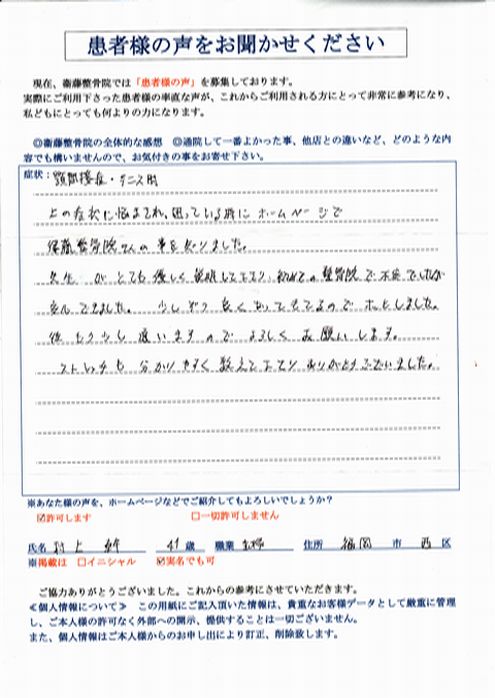 患者様の声をお聞かせください
現在、衞藤整骨院では「患者様の声」を募集しております。
実際にご利用下さった患者様の率直な声が、これからご利用される方にとって非常に参考になり、
私どもにとっても何よりの力になります。
◎衞藤整骨院の全体的な感想　◎通院して一番よかった事、他店との違いなど、どのような内
容でも構いませんので、お気付きの事をお寄せ下さい。
症状：顎関接症・テニス肘
上の症状に悩まされ、困っている時にホームページで
整骨院さんの事を知りました。
先生がとても優しく説明して下さり、初めての整骨院で不安でしたが
安心できました。少しずつ良くなってきてるのでホッとしました。
後もう少し通いますのでよろしくお願いします。
ストレッチも分かりやすく教えて下さりありがとうございました。
※あなた様の声を、ホームページなどでご紹介してもよろしいでしょうか？
☑許可します　□一切許可しません
氏名 村上 歳 職業 主婦 住所 福岡 市 西 区
※掲載は　□イニシャル　☑実名でも可
ご協力ありがとうございました。これからの参考にさせていただきます。
≪個人情報について≫　この用紙にご記入頂いた情報は、貴重なお客様データとして厳重に管理
し、ご本人様の許可なく外部への開示、提供することは一切ございません。
また、個人情報はご本人様からのお申し出により訂正、削除致します。